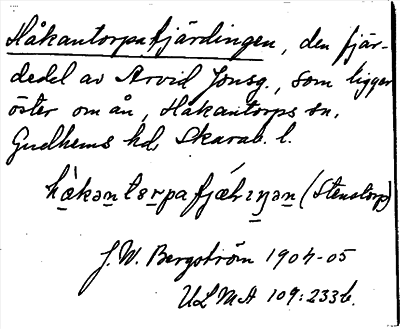 Håkantorpafjärdingen, den fjär-
dedel av Arvid Jonsg., som ligger
öster om ån, Håkantorps sn,
Gudhems hd Skarab. l.
håkantorpafjæḷıŋən (Stenstorp)
J. W. Bergström 1904-05
ULMA 109:233 b.